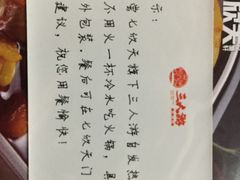 示：
尝七欣天旗下三人游自发热
不用火一杯冷水吃火锅，具
外包装，餐后可在七欣天门
建议，祝您用餐愉快！
三人游
欣天